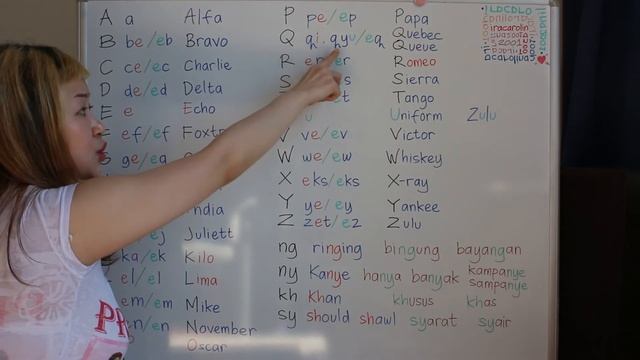 A a Alfa
B be/eb Bravo
C ce/ec Charlie
D de/ed Delta
E e Echo
ef/ef Foxtr
ge/
India
Juliett
ka/ek Kilo
el/el Lima
em/em Mike
en/en November
Oscar
P pe/ep Papa
Q qi. qyu/eq Quebec
Queue
R er Romeo
S s Sierra
Tango
u Uniform Zulu
V ve/ev Victor
W we/ew Whiskey
X eks/eks X-ray
Y ye/ey Yankee
Z zet/ez Zulu
ng ringing bingung bayangan
ny Kanye hanya banyak kampanye
sampanye
kh Khan khusus khas
sy should shawl syarat syair